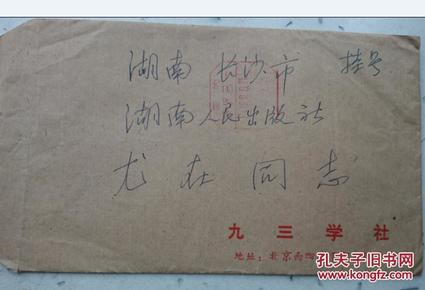 湖南 长沙市 挂号
湖南人民出版社
尤在同志
九三学社
地址:北京西四
孔夫子旧书网
www.kongfz.com